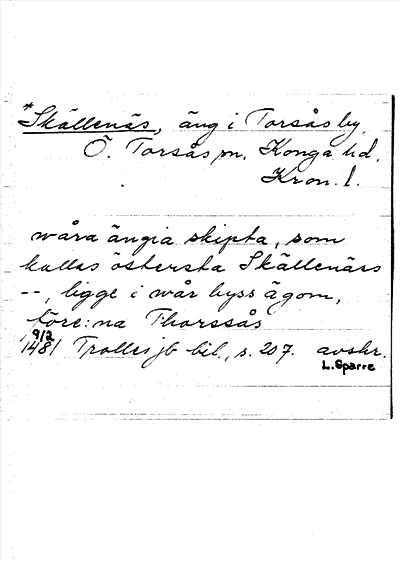 *Skällenäs, äng i Torsås by,
Ö. Torsås sn. Konga hd.
Kron. l.
wåra ängia skipta, som
kallas östersta Skällenäss
--, ligge i wår byss ägom,
före:na Thorssås
9/2
1481 Trolles jb bil., s. 207. avskr.
L. Sparre